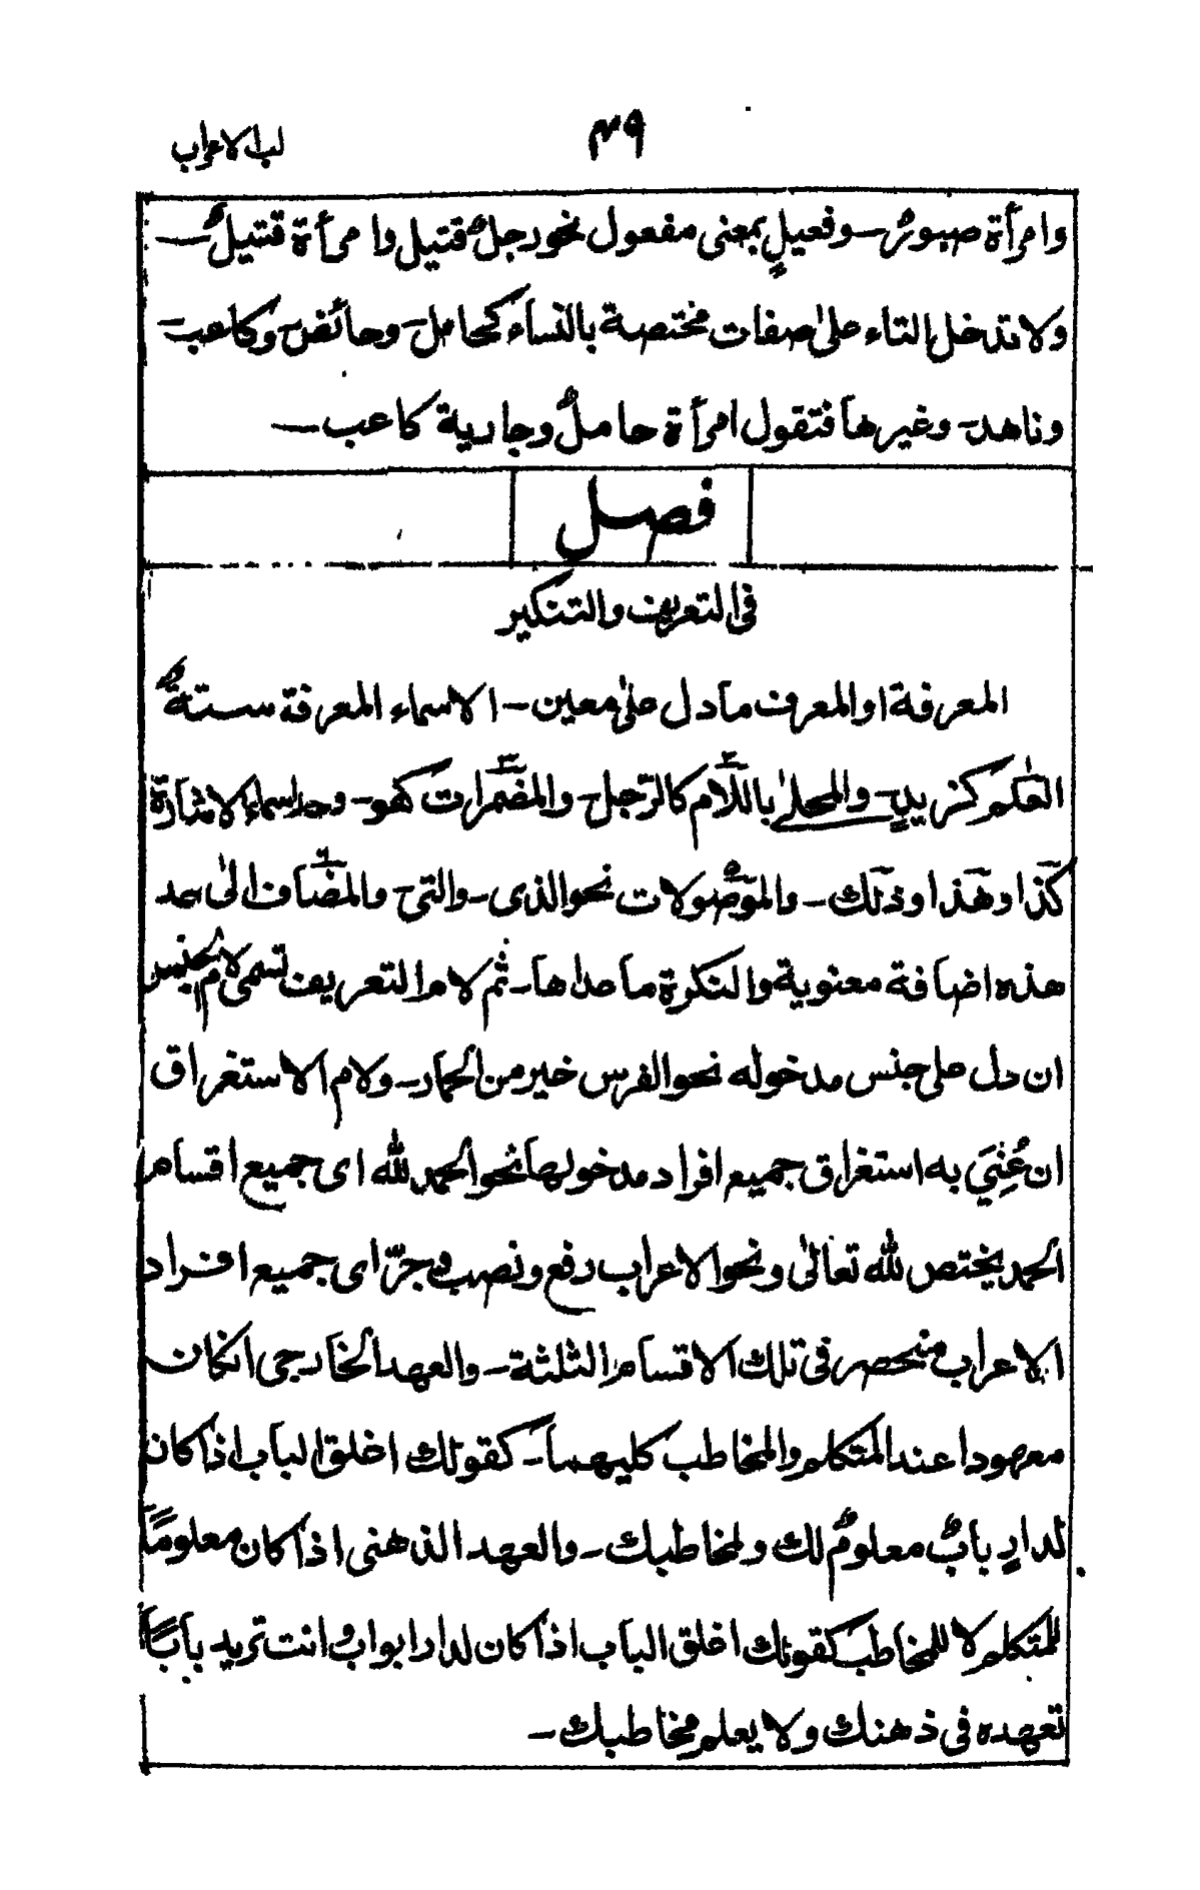 ٤٩ لب الاعراب
وامرأة صبورٌ۔ وفعيلٍ بمعنى مفعول نحو رجلٌ قتيل وامرأة قتيلٌ۔
ولا تدخل التاء على صفات مختصة بالنساء كحامل۔ وحائض۔ وكاعب۔
وناهد۔ وغيرها فتقول امرأة حاملٌ وجارية كاعب۔
فصل
فى التعريف والتنكير
المعرفة او المعرف ما دل على معين۔ الاسماء المعرفة ستةٌ
العلم كزيدٍ۔ والمحلى باللام كالرجل۔ والمضمرات كهو۔ واسماء الاشارة
كذا وهذا وذلك۔ والموصولات نحو الذى۔ والتى۔ والمضاف الى احد
هذه اضافة معنوية والنكرة ما عداها۔ ثم لام التعريف تسمى لام الجنس
ان دل على جنس مدخوله نحو الفرس خير من الحمار۔ ولام الاستغراق
ان عُنِيَ به استغراق جميع افراد مدخولها نحو الحمد لله اى جميع اقسام
الحمد يختص لله تعالىٰ ونحو الاعراب رفع ونصب وجرّ اى جميع افراد
الاعراب منحصر فى تلك الاقسام الثلثة۔ والعهد الخارجى انكان
معهودا عند المتكلم والمخاطب كليهما۔ كقولك اغلق الباب اذا كان
لدارٍ بابٌ معلومٌ لك ولمخاطبك۔ والعهد الذهنى اذا كان معلوماً
للمتكلم لا للمخاطب كقولك اغلق الباب اذا كان لدار ابواب وانت تريد باباً
تعهده فى ذهنك ولا يعلم مخاطبك۔